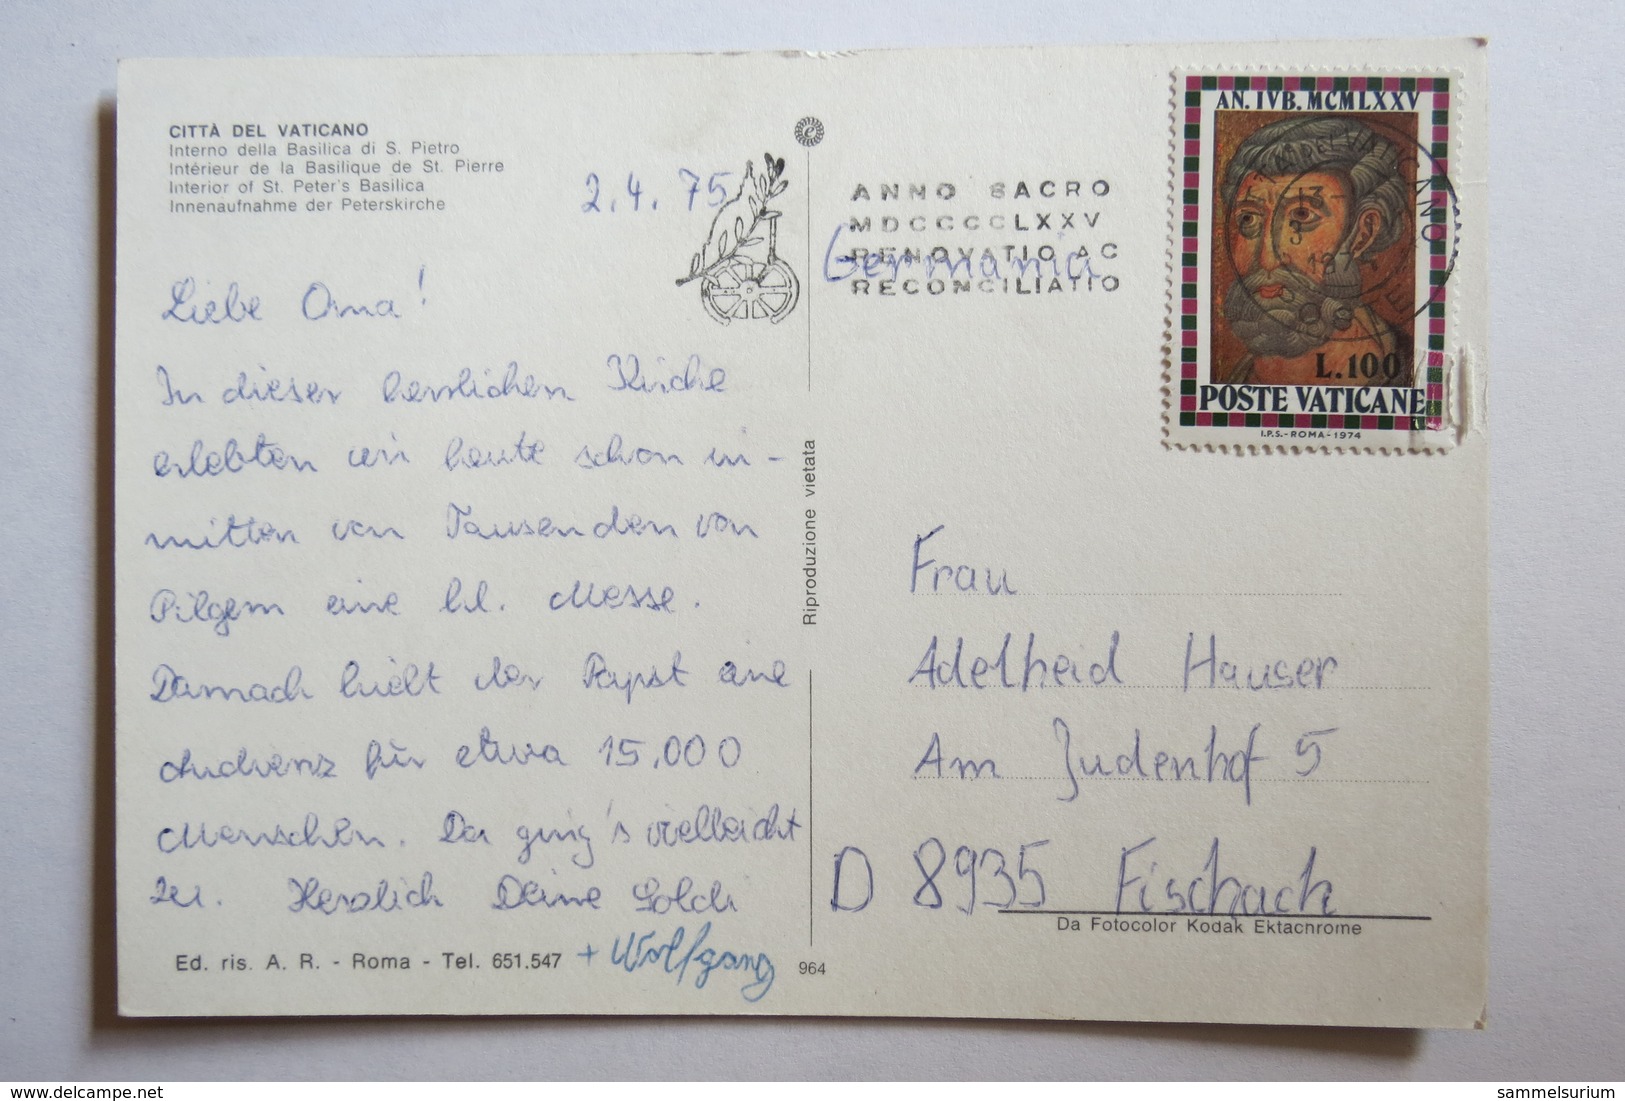 CITTÀ DEL VATICANO
Interno della Basilica di S. Pietro
Intérieur de la Basilique de St. Pierre
Interior of St. Peter's Basilica
Innenaufnahme der Peterskirche
2.4.75
Liebe Oma!
In dieser herrlichen Kirche
erlebten wir heute schon in-
mitten von Tausenden von
Pilgern eine hl. Messe.
Danach hielt der Papst eine
Audienz für etwa 15.000
Menschen. Da ging's vielleicht
zu. Herzlich Deine
+ Wolfgang
Ed. ris. A. R. - Roma - Tel. 651.547
964
Riproduzione vietata
ANNO SACRO
MDCCCCLXXV
RENOVATIO AC
RECONCILIATIO
Germania
AN. IVB. MCMLXXV
L.100
POSTE VATICANE
I.P.S.-ROMA-1974
Frau
Adelheid Hauser
Am Judenhof 5
D 8935 Fischach
Da Fotocolor Kodak Ektachrome
www.delcampe.net
sammelsurium